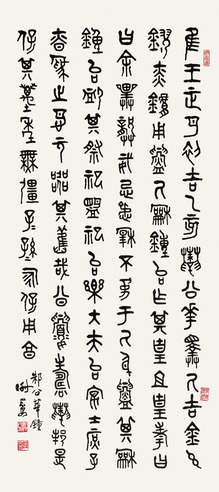 隹王正月初吉乙亥邾公華擇厥吉金玄
鏐赤鏞用鑄厥龢鐘台乍其皇且皇考
曰余畢龏威忌淑穆不墜于厥身鑄其龢
鐘台卹其祭祀盟祀台樂大夫台宴士庶子
昚為之名元器其舊哉公眉壽邾邦是
保其萬年無疆子孫永保用享
邾公華鐘